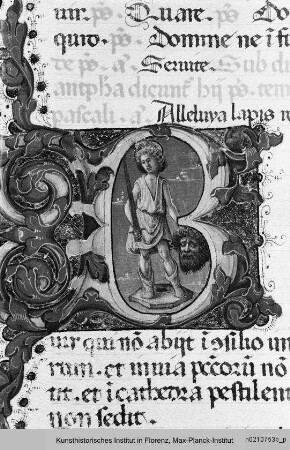 uir. p̄o. Quare. p̄o. Do
quid. p̄o. Domine ne i f
te p̄o. a. Seruite. Sub d
antpha dicunt hij p̄o. tem
pascali. a. Alleluya lapis r
B
uir qui nō abijt ī ꝯsilio im
rum. et in uia pc̄corū nō
tit. et ī cathedra pestilent
non sedit.
Kunsthistorisches Institut in Florenz, Max-Planck-Institut